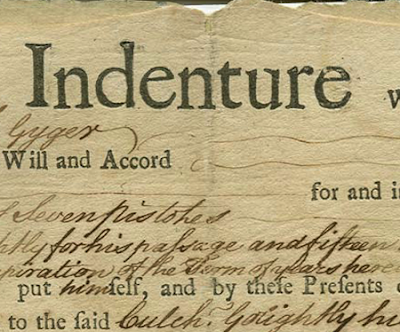 Indenture W
Gyger
Will and Accord
for and i
Seven pistoles
htly for his passage and fifteen
piration of the Term of years here
put himſelf, and by theſe Preſents
to the ſaid Culch. Golightly hi